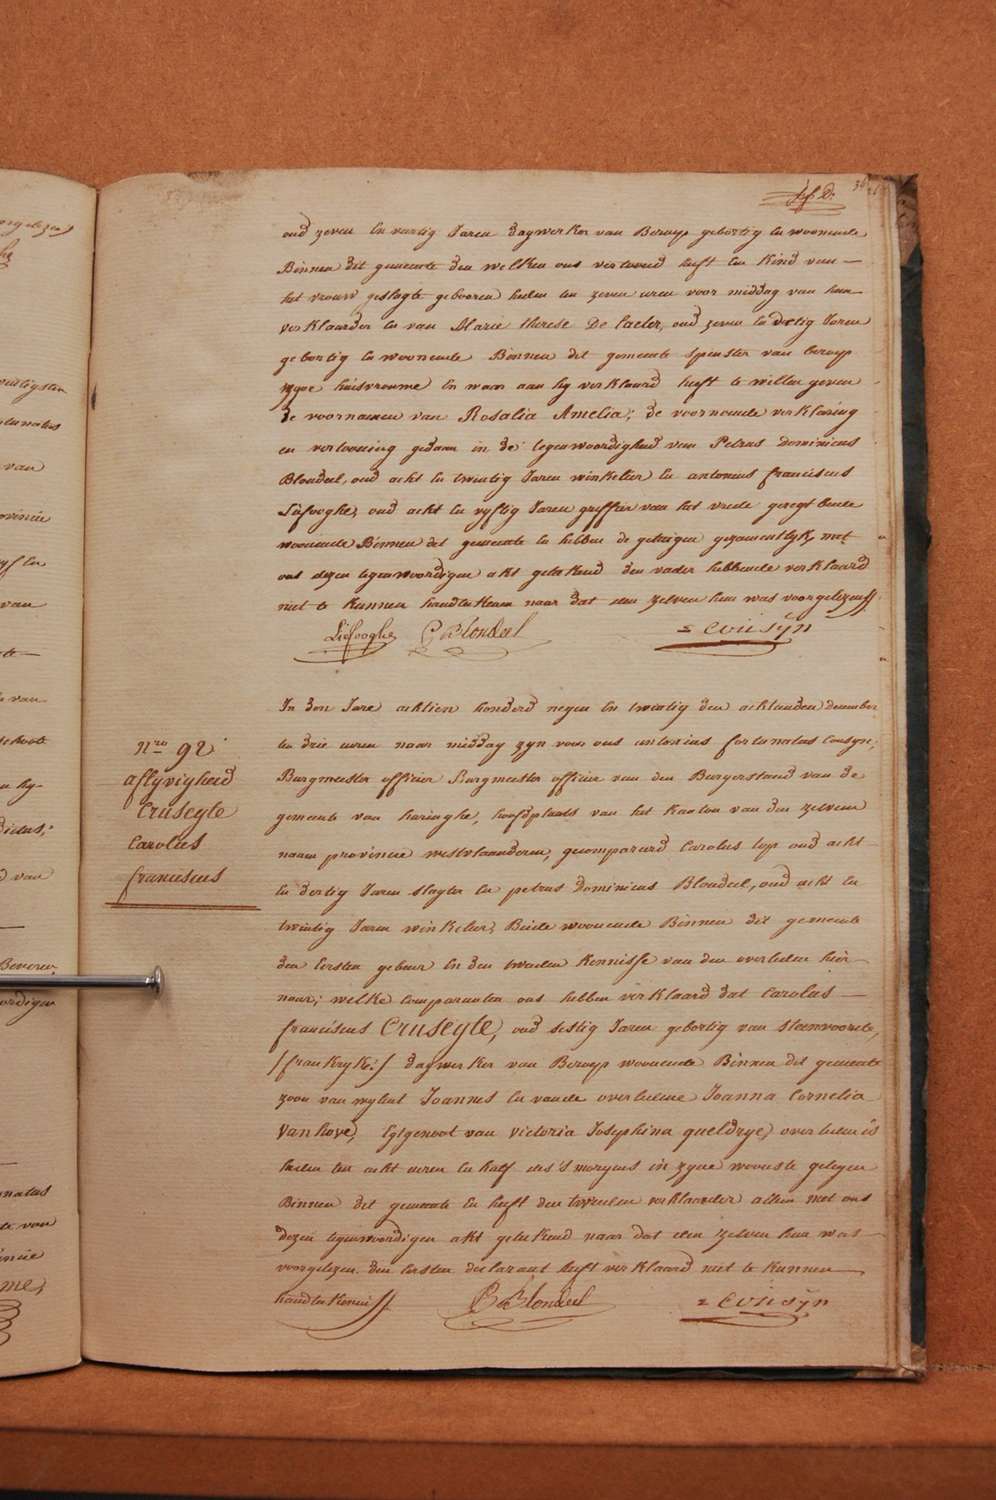 oud zeven en vertig Jaren dagwerker van Beroep gebortig en woonende
Binnen dit gemeente den welken ons vertoond heeft een kind van
het vrouw geslagte gebooren heden ten zeven uren voor middag van hem
verklaarder en van Marie therese De laeter, oud zeven en dertig Jaren
gebortig en woonende Binnen dit gemeente spinster van beroep
zyne huisvrouwe en waar aan hy verklaard heeft te willen geven
de voornamen van Rosalia Amelia; de voornoemde verklaring
en vertooning gedaan in de tegenwoordigheid van Petrus dominicus
Blondeel, oud acht en twintig Jaren winkelier en antonius franciscus
Liefooghe, oud acht en vyftig Jaren griffier van het vrede geregt beide
woonende Binnen dit gemeente en hebben de getuigen gezamentlyk, met
ons dezen tegenwoordigen akt geteekend den vader hebbende verklaard
niet te kunnen handteekenen naar dat den zelven hem was voorgelezen
Liefooghe P D Blondeel = Cousÿn
nro 92
aflyvigheid
Cruseyle
Carolus
franciscus
In den Jare achtien honderd negen en twintig den achtanden december
ten drie uren naar middag zyn voor ons antonius fortunatus Cousyn,
Burgmeester officier Burgmeester officier van den Burgerstand van de
gemeente van haringhe, hoofdplaats van het kanton van den zelven
naam provincie westvlaanderen, gecompareerd Carolus top oud acht
en dertig Jaren slagter en petrus dominicus Blondeel, oud acht en
twintig Jaren winkelier, Beide woonende Binnen dit gemeente
den Eersten gebuer en den tweeden kennisse van den overleden hier
naar; welke Comparanten ons hebben verklaard dat Carolus
franciscus Cruseyle, oud sestig Jaren gebortig van Steenvoorde,
/frankryke:/ dagwerker van Beroep woonende Binnen dit gemeente
zoon van wylent Joannes en van de overledene Joanna Cornelia
Vanhove, Egtgenoot van Victoria Josephina queldrye, overleden is
heden ten acht uren en half des 's morgens in zyne wooninste gelegen
Binnen dit gemeente en heeft den tweeden verklaarder alleen met ons
dezen tegenwoordigen akt geteekend naar dat den zelven hem was
voorgelezen den Eersten declarant heeft verklaard niet te kunnen
handteekenen
P D Blondeel = Cousÿn